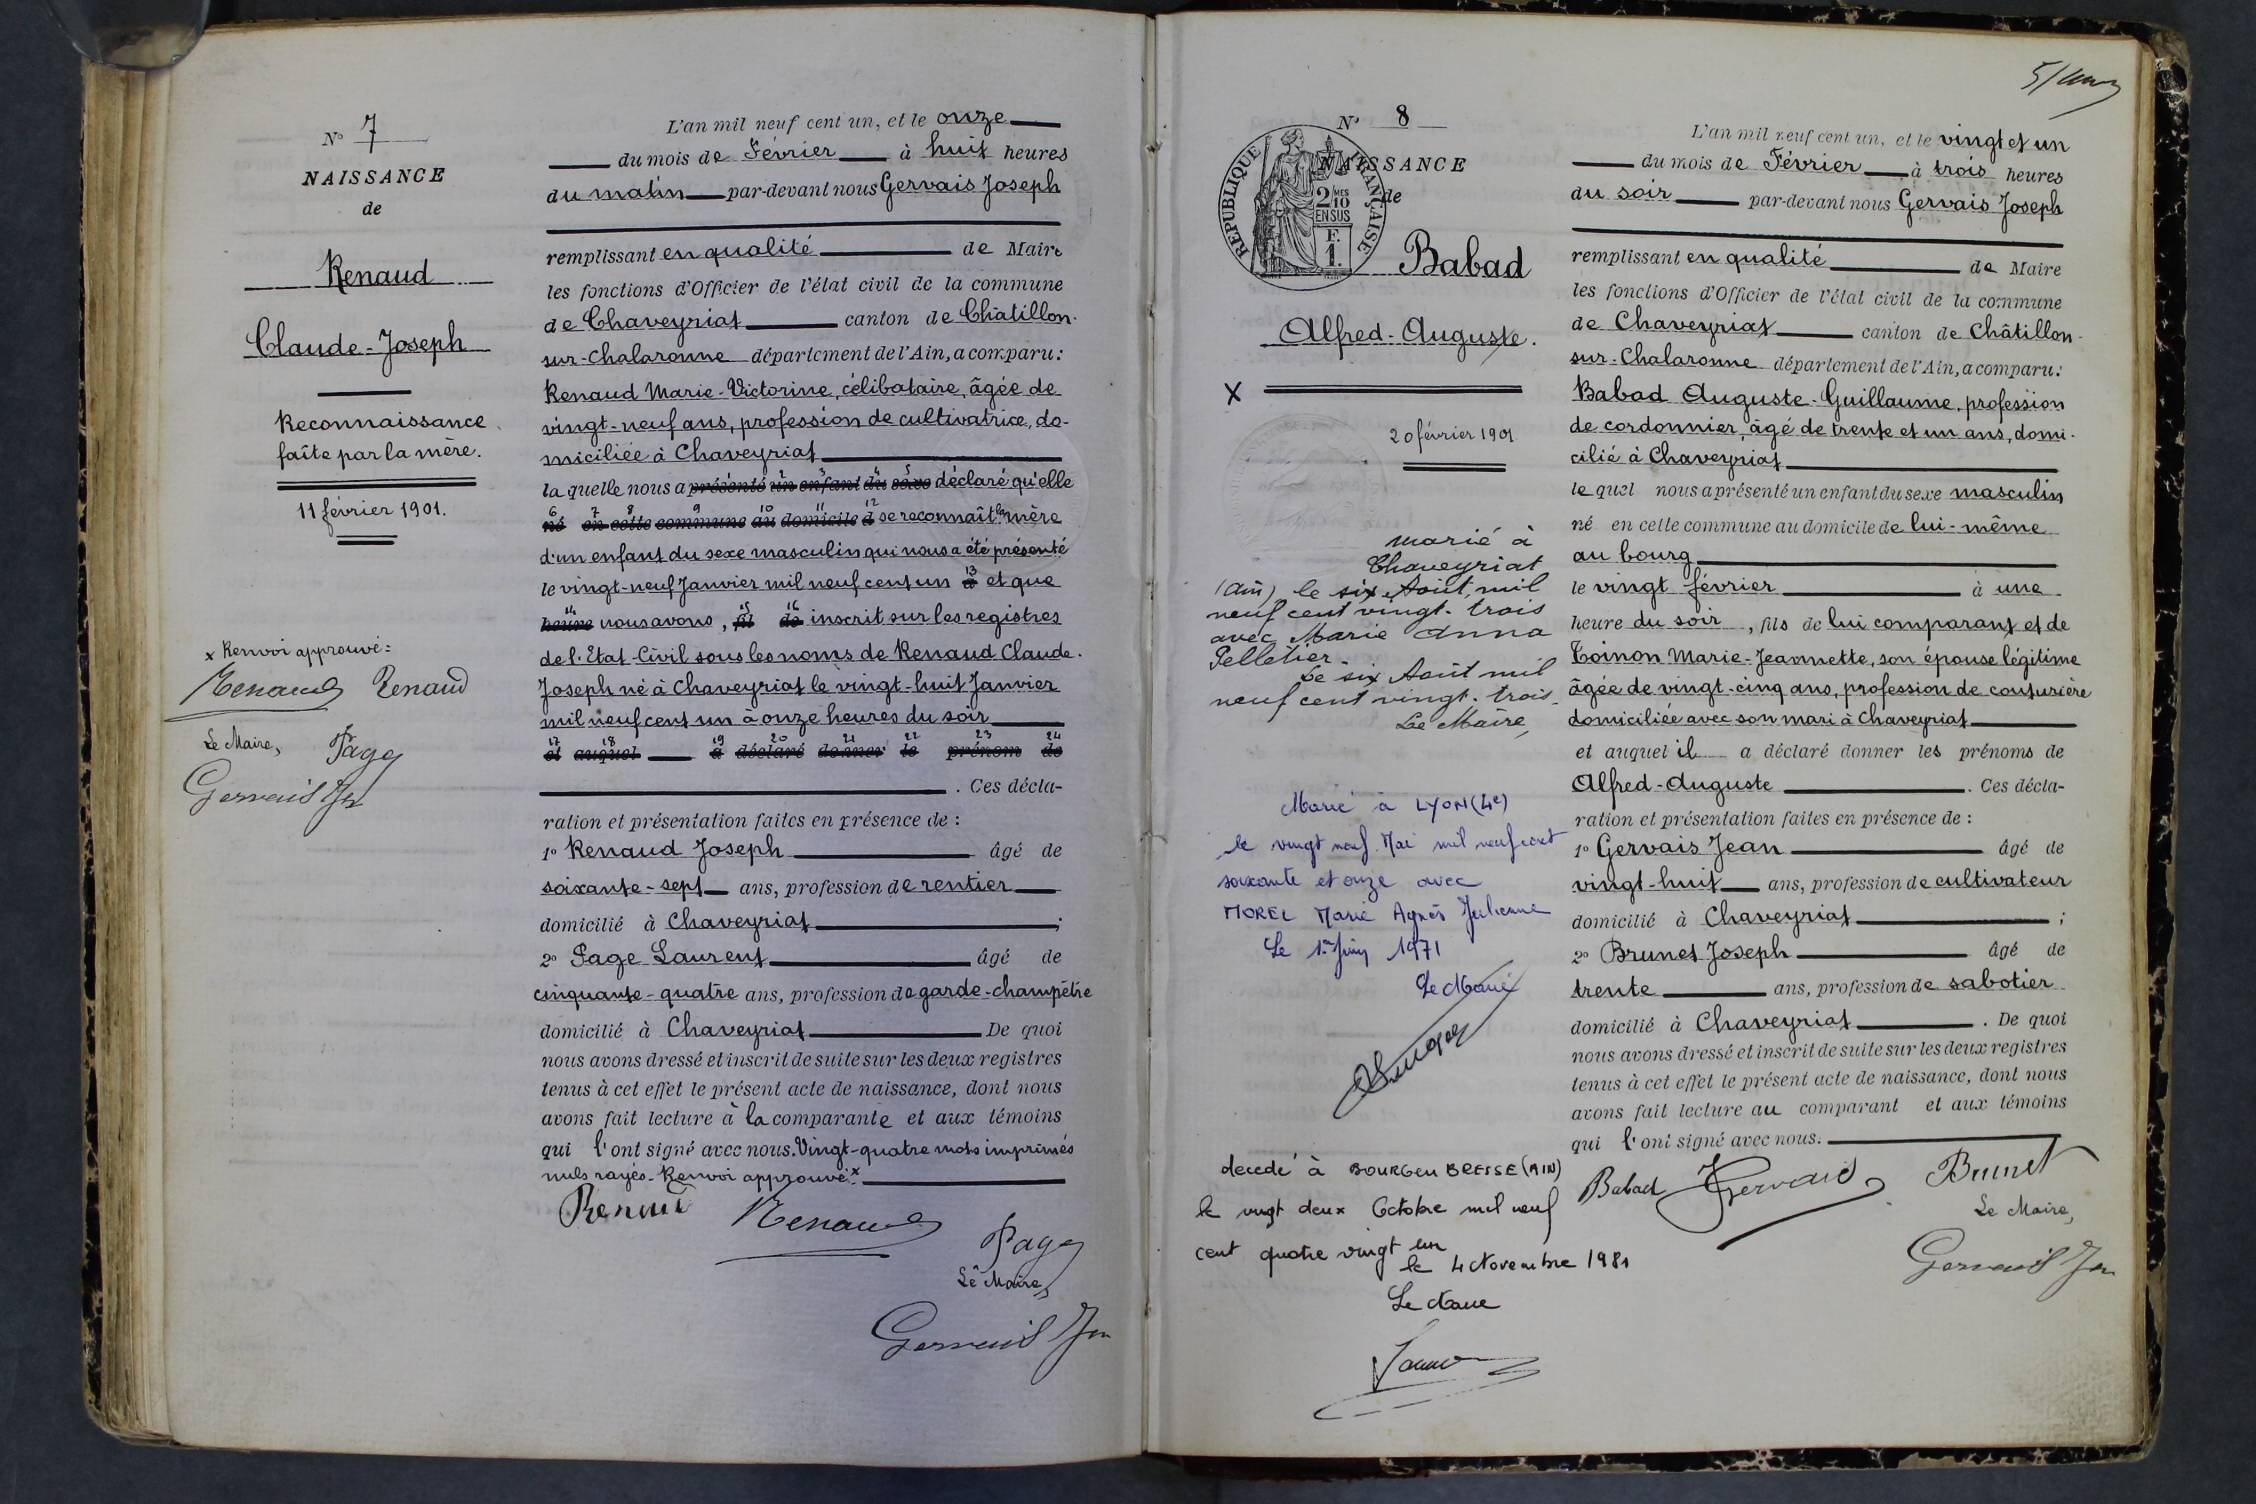 N° 7
NAISSANCE
de
Renaud
Claude-Joseph
Reconnaissance
faîte par la mère.
11 février 1901.
x Renvoi approuvé:
Renaud Renaud
Le Maire, Page
Gervais Jh
L'an mil neuf cent un, et le onze
du mois de Février à huit heures
du matin par-devant nous Gervais Joseph
remplissant en qualité de Maire
les fonctions d'Officier de l'état civil de la commune
de Chaveyriat canton de Châtillon-
sur-Chalaronne département de l'Ain, a comparu:
Renaud Marie-Victorine, célibataire, âgée de
vingt-neuf ans, profession de cultivatrice, do-
miciliée à Chaveyriat
la quelle nous a présenté un enfant du sexe déclaré qu'elle
né en cette commune au domicile d se reconnaît la mère
d'un enfant du sexe masculin qui nous a été présenté
le vingt-neuf Janvier mil neuf cent un à et que
heure nous avons, fil de inscrit sur les registres
de l'Etat-Civil sous les noms de Renaud Claude-
Joseph né à Chaveyriat le vingt-huit Janvier
mil neuf cent un à onze heures du soir
et auquel a déclaré donner le prénom de
. Ces décla-
ration et présentation faites en présence de :
1° Renaud Joseph âgé de
soixante-sept ans, profession de rentier
domicilié à Chaveyriat ;
2° Page Laurent âgé de
cinquante-quatre ans, profession de garde-champêtre
domicilié à Chaveyriat De quoi
nous avons dressé et inscrit de suite sur les deux registres
tenus à cet effet le présent acte de naissance, dont nous
avons fait lecture à la comparante et aux témoins
qui l'ont signé avec nous. Vingt-quatre mots imprimés
nuls rayés. Renvoi approuvé x
Renaud Renaud
Page
Le Maire,
Gervais Jh
N° 8
NAISSANCE
de
REPUBLIQUE FRANÇAISE
2/10 MES
EN SUS
F.
1.
Babad
Alfred-Auguste.
X
20 février 1901
marié à
Chaveyriat
(Ain) le six Août mil
neuf cent vingt-trois
avec Marie Anna
Pelletier.
Le six Août mil
neuf cent vingt-trois
Le Maire,
Marié à LYON (4e)
le vingt neuf Mai mil neuf cent
soixante et onze avec
MOREL Marie Agnès Julienne
Le 1er Juin 1971
Le Maire
decedé à BOURG EN BRESSE (AIN)
le vingt deux Octobre mil neuf
cent quatre vingt un
le 4 Novembre 1981
Le Maire
L'an mil neuf cent un, et le vingt et un
du mois de Février à trois heures
du soir par-devant nous Gervais Joseph
remplissant en qualité de Maire
les fonctions d'Officier de l'état civil de la commune
de Chaveyriat canton de Châtillon-
sur-Chalaronne département de l'Ain, a comparu:
Babad Auguste-Guillaume, profession
de cordonnier, âgé de trente et un ans, domi-
cilié à Chaveyriat
le quel nous a présenté un enfant du sexe masculin
né en cette commune au domicile de lui-même
au bourg
le vingt février à une
heure du soir, fils de lui comparant et de
Toinon Marie-Jeannette, son épouse légitime
âgée de vingt-cinq ans, profession de couturière
domiciliée avec son mari à Chaveyriat
et auquel il a déclaré donner les prénoms de
Alfred-Auguste . Ces décla-
ration et présentation faites en présence de :
1° Gervais Jean âgé de
vingt-huit ans, profession de cultivateur
domicilié à Chaveyriat ;
2° Brunet Joseph âgé de
trente ans, profession de sabotier
domicilié à Chaveyriat . De quoi
nous avons dressé et inscrit de suite sur les deux registres
tenus à cet effet le présent acte de naissance, dont nous
avons fait lecture au comparant et aux témoins
qui l'ont signé avec nous.
Babad Gervais Brunet
Le Maire,
Gervais Jh